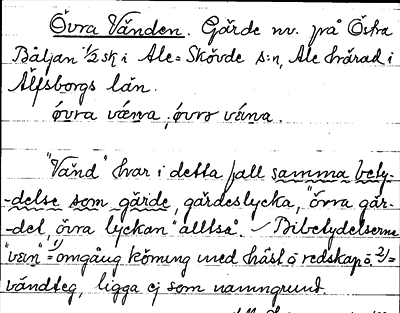 Övra Vänden. Gärde nv. på Östra
Båljan 1/2 sk i Ale-Skövde s:n, Ale härad i
Älfsborgs län.
övra væna, övrə vɛ́na.
"Vänd" har i detta fall samma bety-
-delse som gärde, gärdeslycka, "övra gär-
-det, övra lyckan" alltså. Bibetydelserna
"vän" 1)= omgång körning med häst o redskap o. 2)=
vändteg, ligga ej som namngrund.